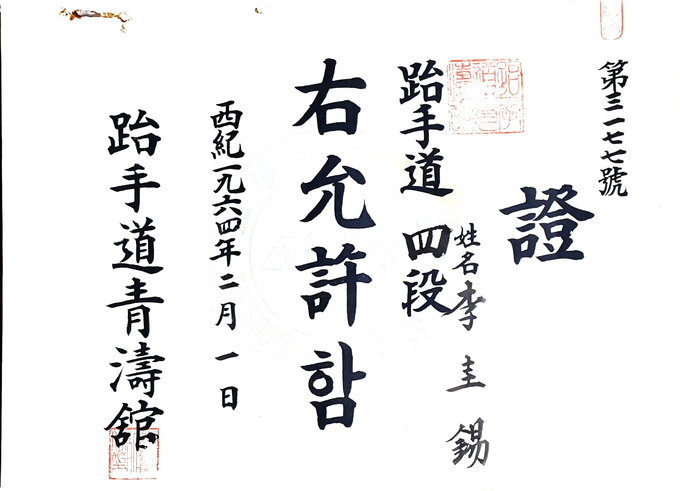 第三一七七號
證
姓名 李圭錫
跆手道 四段
右允許함
西紀一九六四年二月一日
跆手道青濤舘